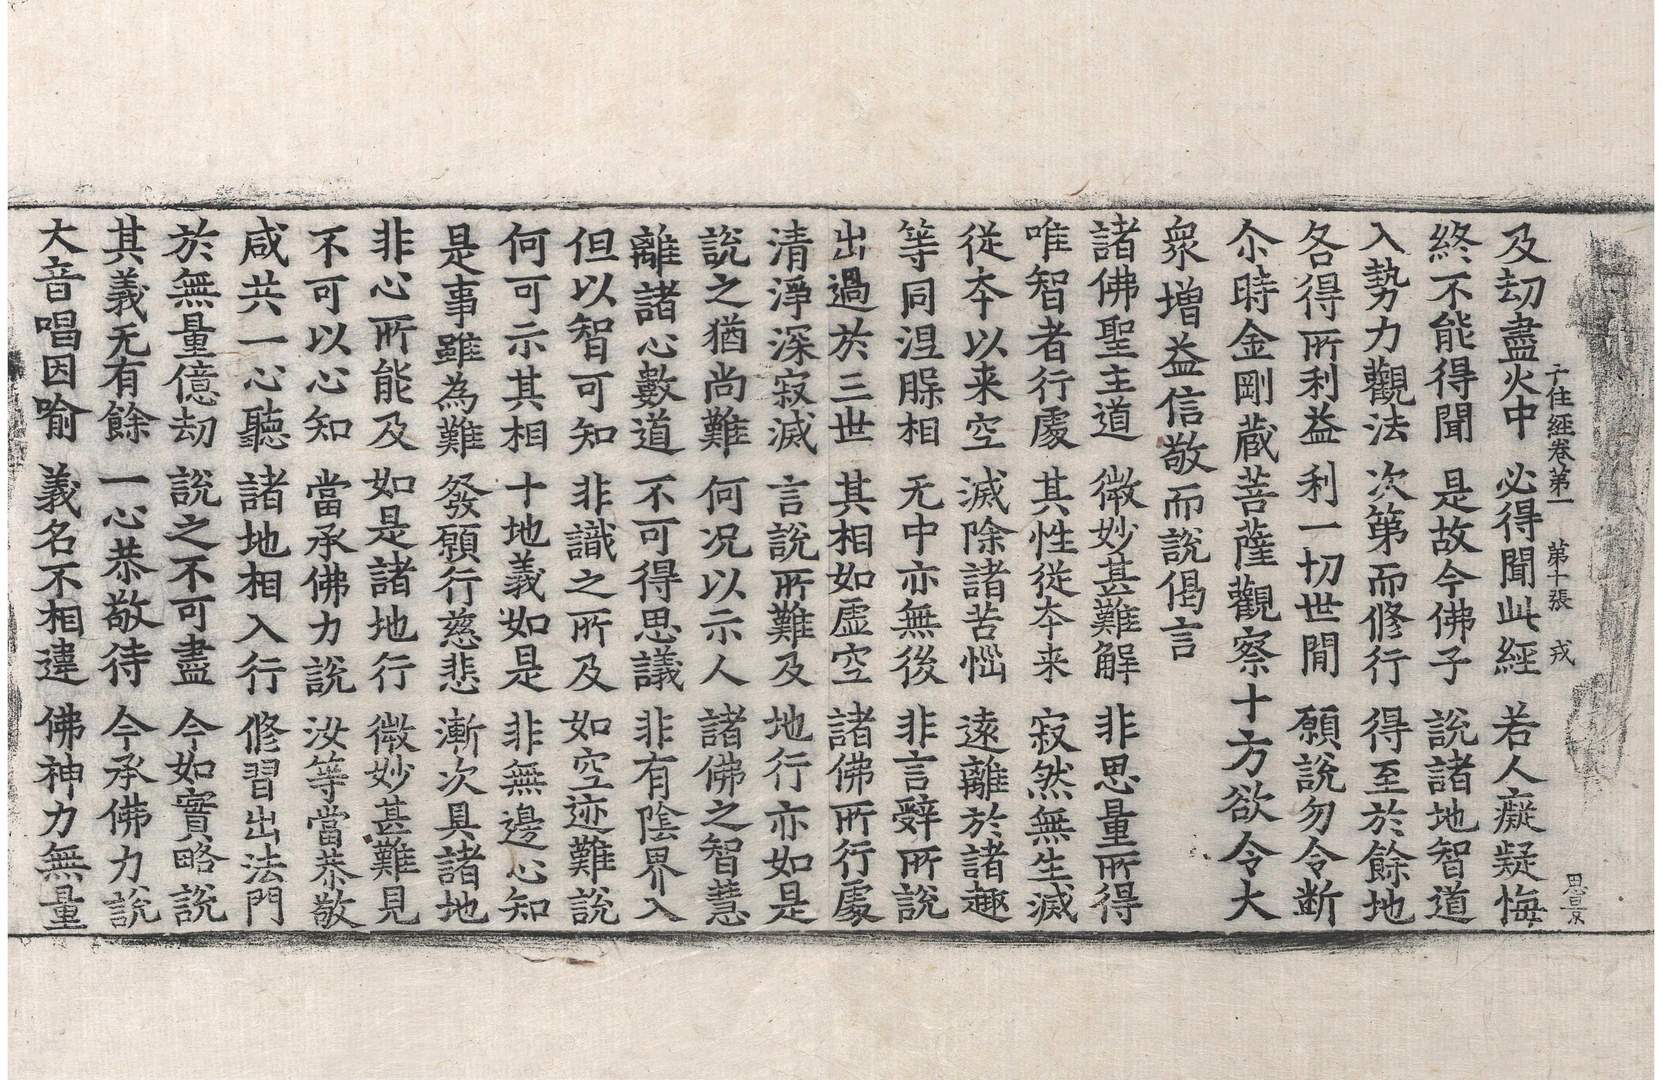 十住經卷第一　第十張　戎
及劫盡火中　必得聞此經　若人癡疑悔
終不能得聞　是故今佛子　說諸地智道
入勢力觀法　次第而修行　得至於餘地
各得所利益　利一切世閒　願說勿令斷
尒時金剛藏菩薩觀察十方欲令大
衆增益信敬而說偈言
諸佛聖主道　微妙甚難解　非思量所得
唯智者行處　其性從夲来　寂然無生滅
從夲以来空　滅除諸苦惱　遠離於諸趣
等同涅槃相　无中亦無後　非言辝所說
出過於三世　其相如虛空　諸佛所行處
清淨深寂滅　言說所難及　地行亦如是
說之猶尚難　何况以示人　諸佛之智慧
離諸心數道　不可得思議　非有陰界入
但以智可知　非識之所及　如空迹難說
何可示其相　十地義如是　非無邊心知
是事雖為難　發願行慈悲　漸次具諸地
非心所能及　如是諸地行　微妙甚難見
不可以心知　當承佛力說　汝等當恭敬
咸共一心聽　諸地相入行　修習出法門
於無量億劫　說之不可盡　今如實略說
其義无有餘　一心恭敬待　今承佛力說
大音唱因喻　義名不相違　佛神力無量